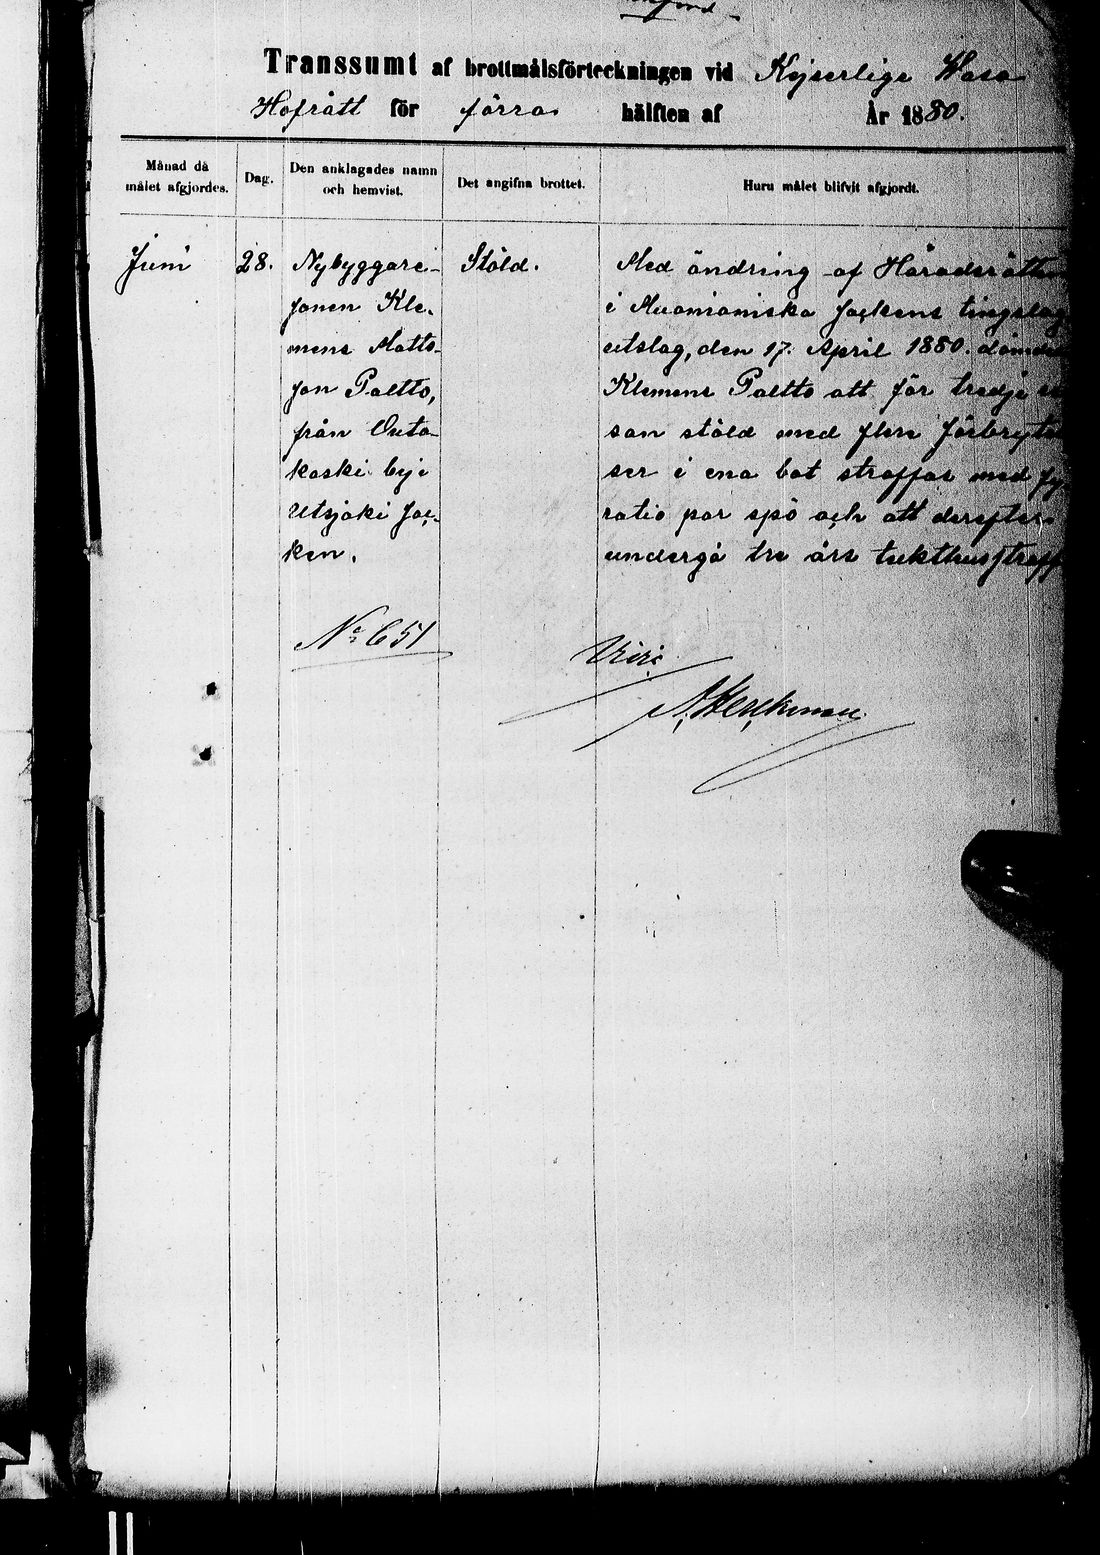 Transsumt af brottmålsförteckningen vid Kejserlige Wasa
Hofrätt för förra hälften af År 1880.
Månad då målet afgjordes.
Dag.
Den anklagades namn och hemvist.
Det angifna brottet.
Huru målet blifvit afgjordt.
Juni
28.
Nybyggare-
sonen Kle-
mens Matts-
son Paltto,
från Outa-
koski by i
Utsjoki soc-
ken.
Stöld.
Med ändring af Häradsrätten
i Muonioniska sockens tingslag
utslag, den 17. April 1880. dömdes
Klemens Paltto att för tredje
son stöld med flere förbrytel
ser i ena bot straffas med fy
ratio par spö och att derefter
undergå tre års tukthusstraff
No 651
Vidi